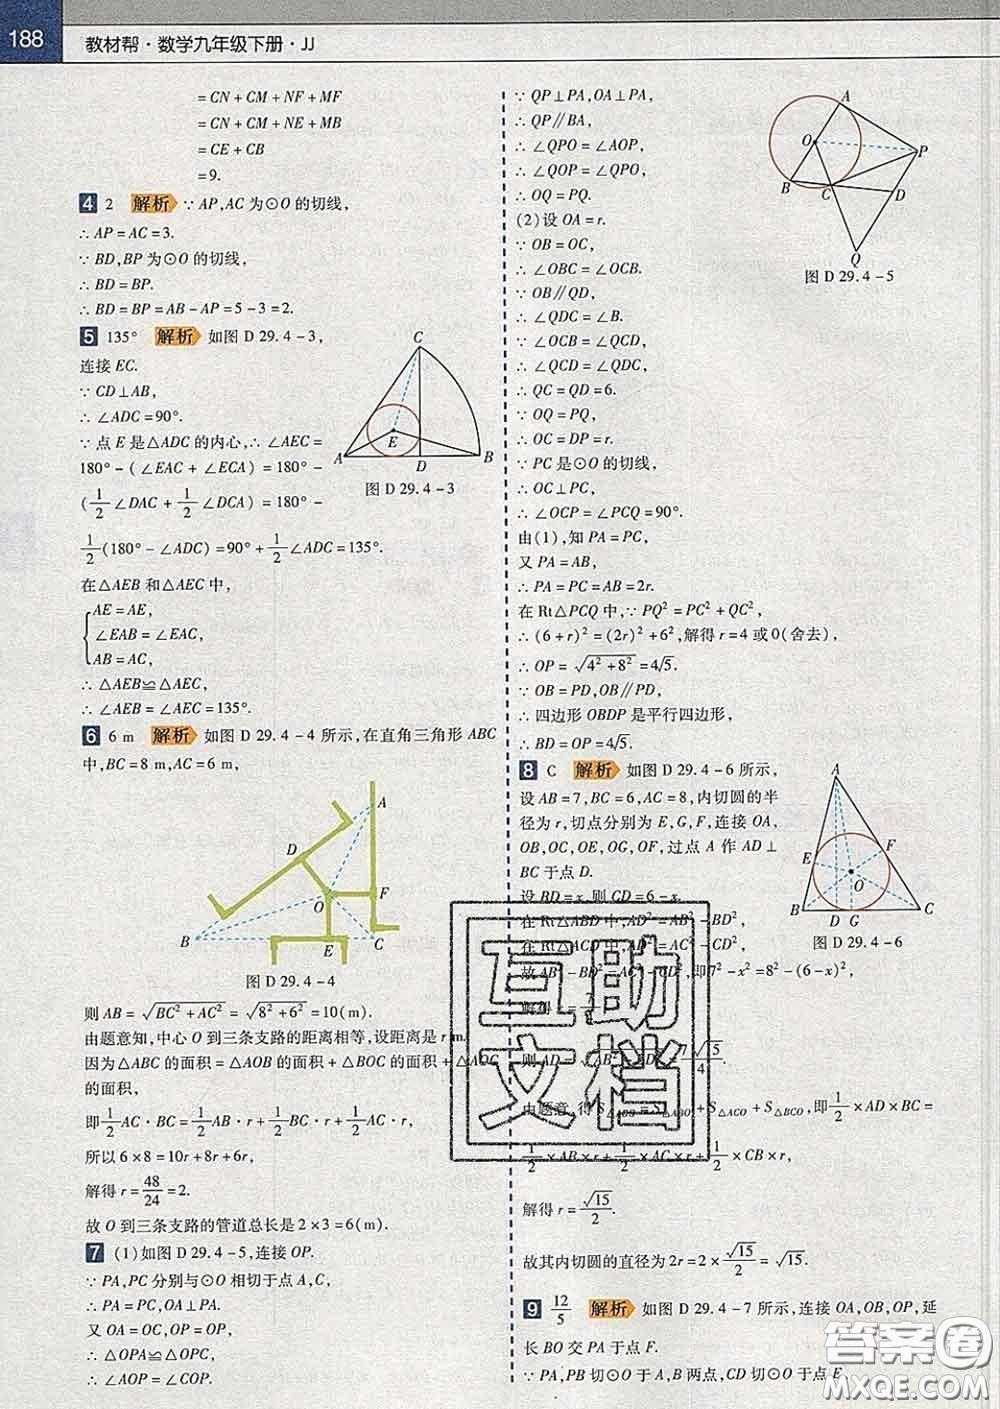 188
教材帮·数学九年级下册·JJ
=CN+CM+NF+MF
=CN+CM+NE+MB
=CE+CB
=9.
4 2 解析 ∵AP,AC为⊙O的切线,
∴AP=AC=3.
∵BD,BP为⊙O的切线,
∴BD=BP.
∴BD=BP=AB-AP=5-3=2.
5 135° 解析 如图D 29.4-3,
连接EC.
∵CD⊥AB,
∴∠ADC=90°.
∵点E是△ADC的内心,∴∠AEC=
180°-(∠EAC+∠ECA)=180°-
(1/2∠DAC+1/2∠DCA)=180°-
1/2(180°-∠ADC)=90°+1/2∠ADC=135°.
在△AEB和△AEC中,
AE=AE,
∠EAB=∠EAC,
AB=AC,
∴△AEB≌△AEC,
∴∠AEB=∠AEC=135°.
C
E
A
D
B
图D 29.4-3
6 6 m 解析 如图D 29.4-4所示,在直角三角形ABC
中,BC=8 m,AC=6 m,
A
D
O
F
B
E
C
图D 29.4-4
则AB=√(BC²+AC²)=√(8²+6²)=10(m).
由题意知,中心O到三条支路的距离相等,设距离是r m.
因为△ABC的面积=△AOB的面积+△BOC的面积+△AOC
的面积,
即1/2AC·BC=1/2AB·r+1/2BC·r+1/2AC·r,
所以6×8=10r+8r+6r,
解得r=48/24=2.
故O到三条支路的管道总长是2×3=6(m).
7 (1)如图D 29.4-5,连接OP.
∵PA,PC分别与⊙O相切于点A,C,
∴PA=PC,OA⊥PA.
又OA=OC,OP=OP,
∴△OPA≌△OPC,
∴∠AOP=∠COP.
∵QP⊥PA,OA⊥PA,
∴QP∥BA,
∴∠QPO=∠AOP,
∴∠QOP=∠QPO,
∴OQ=PQ.
(2)设OA=r.
∵OB=OC,
∴∠OBC=∠OCB.
∵OB∥QD,
∴∠QDC=∠B.
∵∠OCB=∠QCD,
∴∠QCD=∠QDC,
∴QC=QD=6.
∵OQ=PQ,
∴OC=DP=r.
∵PC是⊙O的切线,
∴OC⊥PC,
∴∠OCP=∠PCQ=90°.
由(1),知PA=PC,
又PA=AB,
∴PA=PC=AB=2r.
在Rt△PCQ中,∵PQ²=PC²+QC²,
∴(6+r)²=(2r)²+6²,解得r=4或0(舍去),
∴OP=√(4²+8²)=4√5.
∵OB=PD,OB∥PD,
∴四边形OBDP是平行四边形,
∴BD=OP=4√5.
A
O
P
B
C
D
Q
图D 29.4-5
8 C 解析 如图D 29.4-6所示,
设AB=7,BC=6,AC=8,内切圆的半
径为r,切点分别为E,G,F,连接OA,
OB,OC,OE,OG,OF,过点A作AD⊥
BC于点D.
设BD=x,则CD=6-x.
在Rt△ABD中,AD²=AB²-BD²,
在Rt△ACD中,AD²=AC²-CD²,
故AB²-BD²=AC²-CD²,即7²-x²=8²-(6-x)²,
A
E
F
O
B
D
G
C
图D 29.4-6
则AD=√(AB²-BD²)=7√15/4.
由题意,得S△ABC=S△ABO+S△ACO+S△BCO,即1/2×AD×BC=
1/2×AB×r+1/2×AC×r+1/2×CB×r,
解得r=√15/2.
故其内切圆的直径为2r=2×√15/2=√15.
9 12/5 解析 如图D 29.4-7所示,连接OA,OB,OP,延
长BO交PA于点F.
∵PA,PB切⊙O于A,B两点,CD切⊙O于点E,
互助
文档
答案圈
MXQE.COM